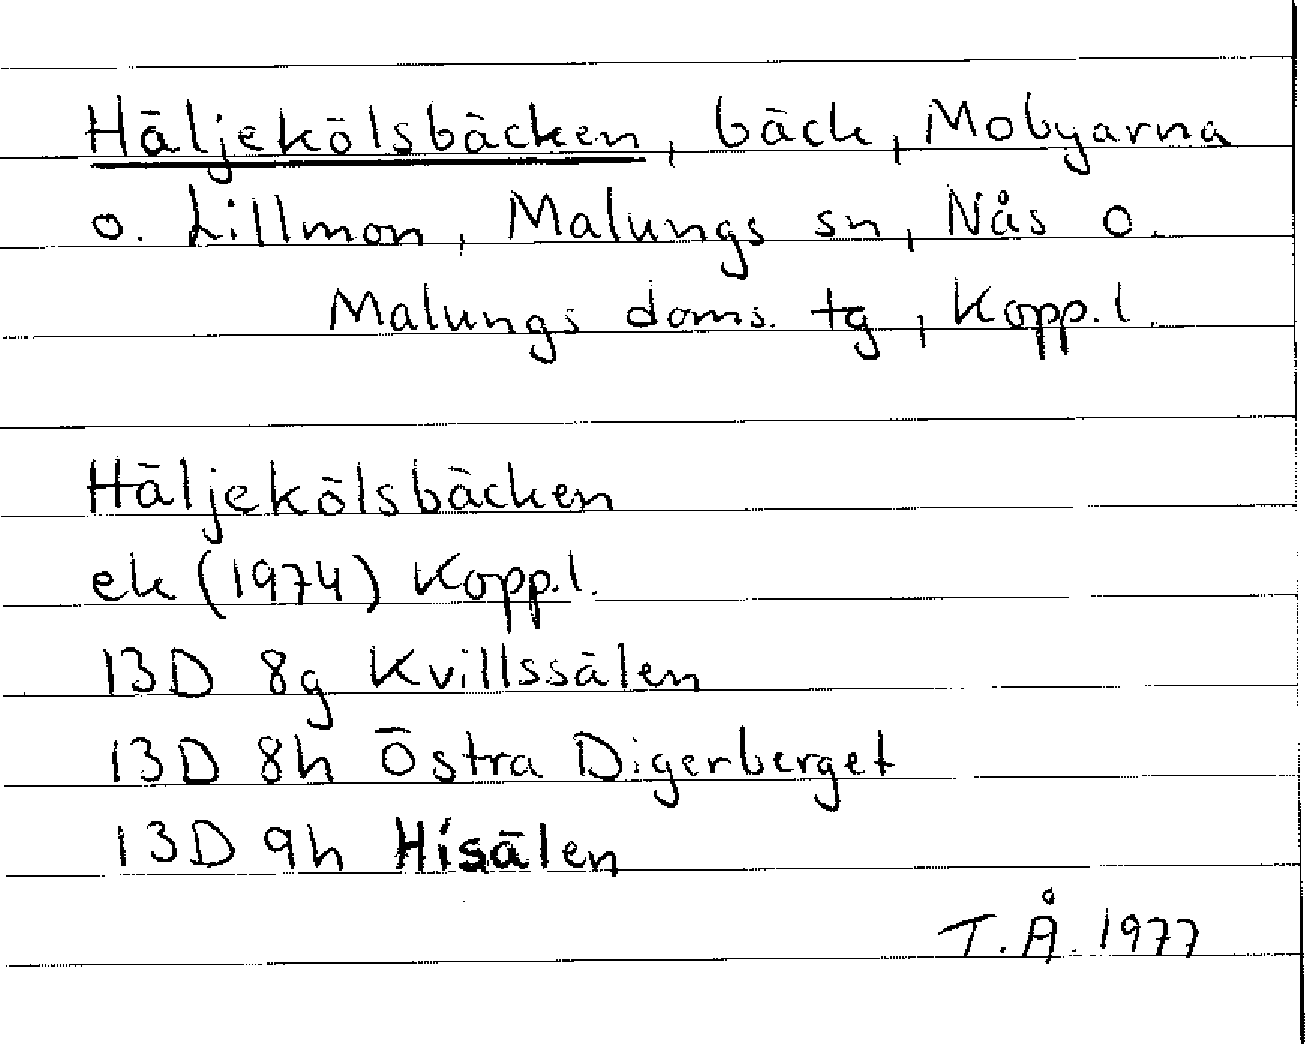 Häljekölsbäcken, bäck, Mobyarna
o. Lillmon, Malungs sn, Nås o.
Malungs doms. tg, Kopp.l.
Häljekölsbäcken
ek (1974) Kopp.l.
13D 8g Kvillssälen
13D 8h Östra Digerberget
13D 9h Hisälen
T.Å. 1977